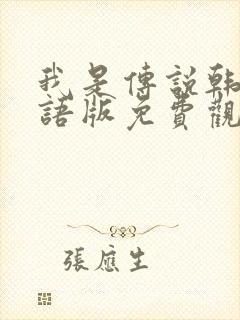 我是傳說韓
語版免費觀
張應生